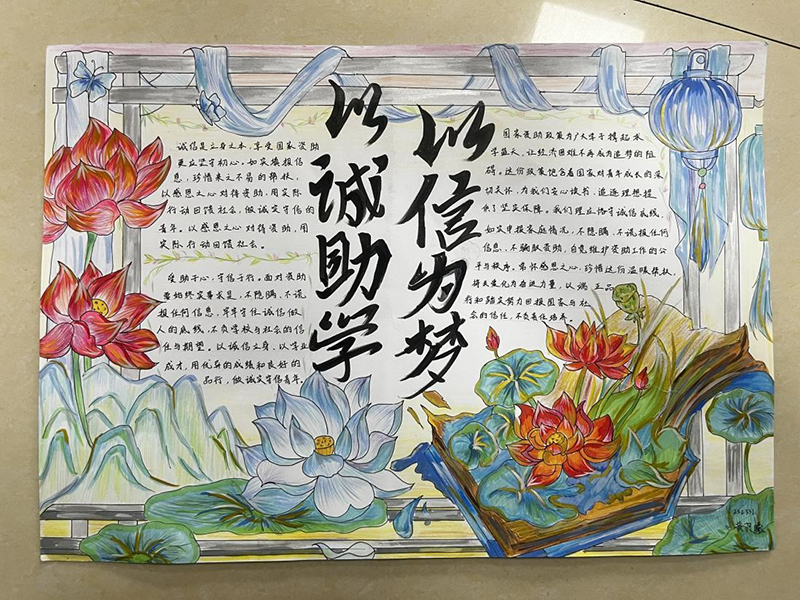 以诚助学
以信为梦
诚信是立身之本，享受国家资助
更应坚守初心。如实填报信
息，珍惜来之不易的帮扶，
以感恩之心对待资助，用实际
行动回馈社会，做诚实守信的
青年。以感恩之心对待资助，用
实际行动回馈社会。
受助于心，守信于行。面对资助
要始终实事求是，不隐瞒、不谎
报任何信息，牢牢守住诚信做
人的底线，不负学校与社会的信
任与期望。以诚信立身、以学业
成才，用优异的成绩和良好的
品行，做诚实守信青年。
国家资助政策为广大学子撑起求
学蓝天，让经济困难不再成为追梦的阻
碍。这份政策饱含着国家对青年成长的深
切关怀，为我们安心读书、追逐理想提
供了坚实保障。我们理应恪守诚信底线，
如实申报家庭情况，不隐瞒、不谎报任何
信息，不骗取资助，自觉维护资助工作的公
平与秩序。常怀感恩之心，珍惜这份温暖帮扶，
将关爱化为奋进力量，以端正品
行和踏实努力回报国家与社
会的信任，不负责任培养。